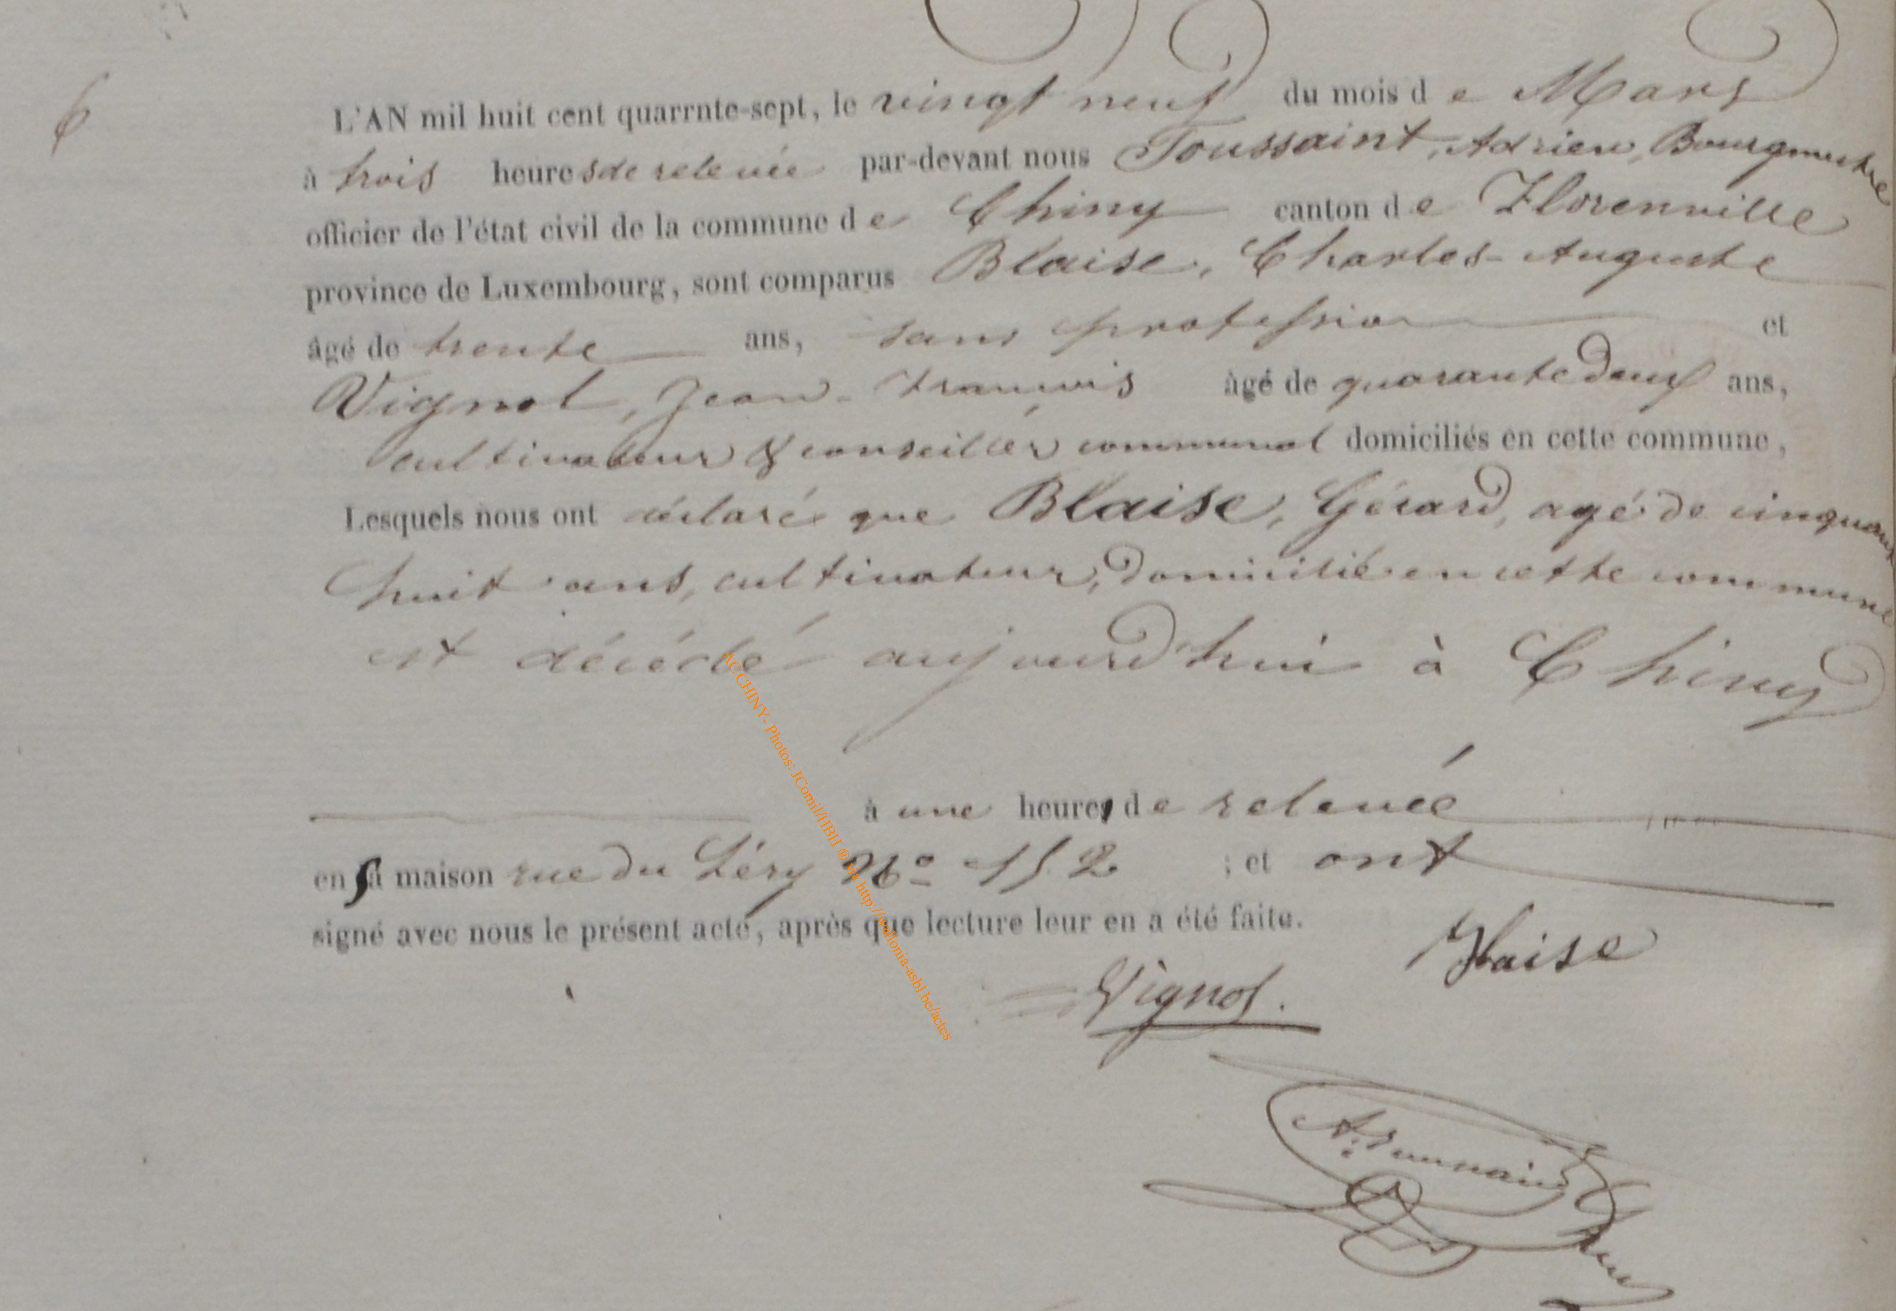 6
L'AN mil huit cent quarrnte-sept, le vingt neuf du mois de Mars
à trois heures de relevée par-devant nous Toussaint, Adrien, Bourgmestre
officier de l'état civil de la commune de Chiny canton de Florenville
province de Luxembourg, sont comparus Blaise, Charles-Auguste
âgé de trente ans, sans profession et
Vignol, Jean-François âgé de quarante deux ans,
cultivateur & conseiller communal domiciliés en cette commune,
Lesquels nous ont déclaré que Blaise, Gérard, agé de cinquante
huit ans, cultivateur, domicilié en cette commune
est décédé aujourd'hui à Chiny
à une heure de relevée
en sa maison rue du Léry No 152 ; et ont
signé avec nous le présent acte, après que lecture leur en a été faite.
Blaise
Vignol.
A. Toussaint
AC CHINY- Photos: JCornil/HBH © http://wallonia-asbl.be/actes